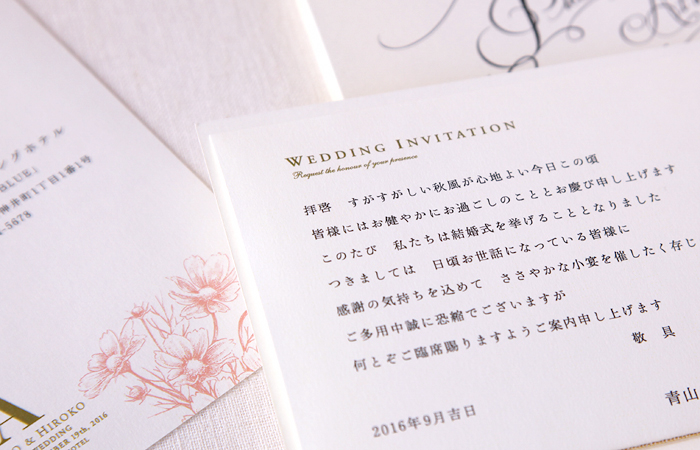 WEDDING INVITATION
Request the honour of your presence
拝啓　すがすがしい秋風が心地よい今日この頃
皆様にはお健やかにお過ごしのこととお慶び申し上げます
このたび　私たちは結婚式を挙げることとなりました
つきましては　日頃お世話になっている皆様に
感謝の気持ちを込めて　ささやかな小宴を催したく存じ
ご多用中誠に恐縮でございますが
何とぞご臨席賜りますようご案内申し上げます
敬具
2016年9月吉日
青山
グホテル
BLUE)
神井町1丁目1番1号
5678
A
O & HIROKO
WEDDING
BER 19th, 2016
HOTEL